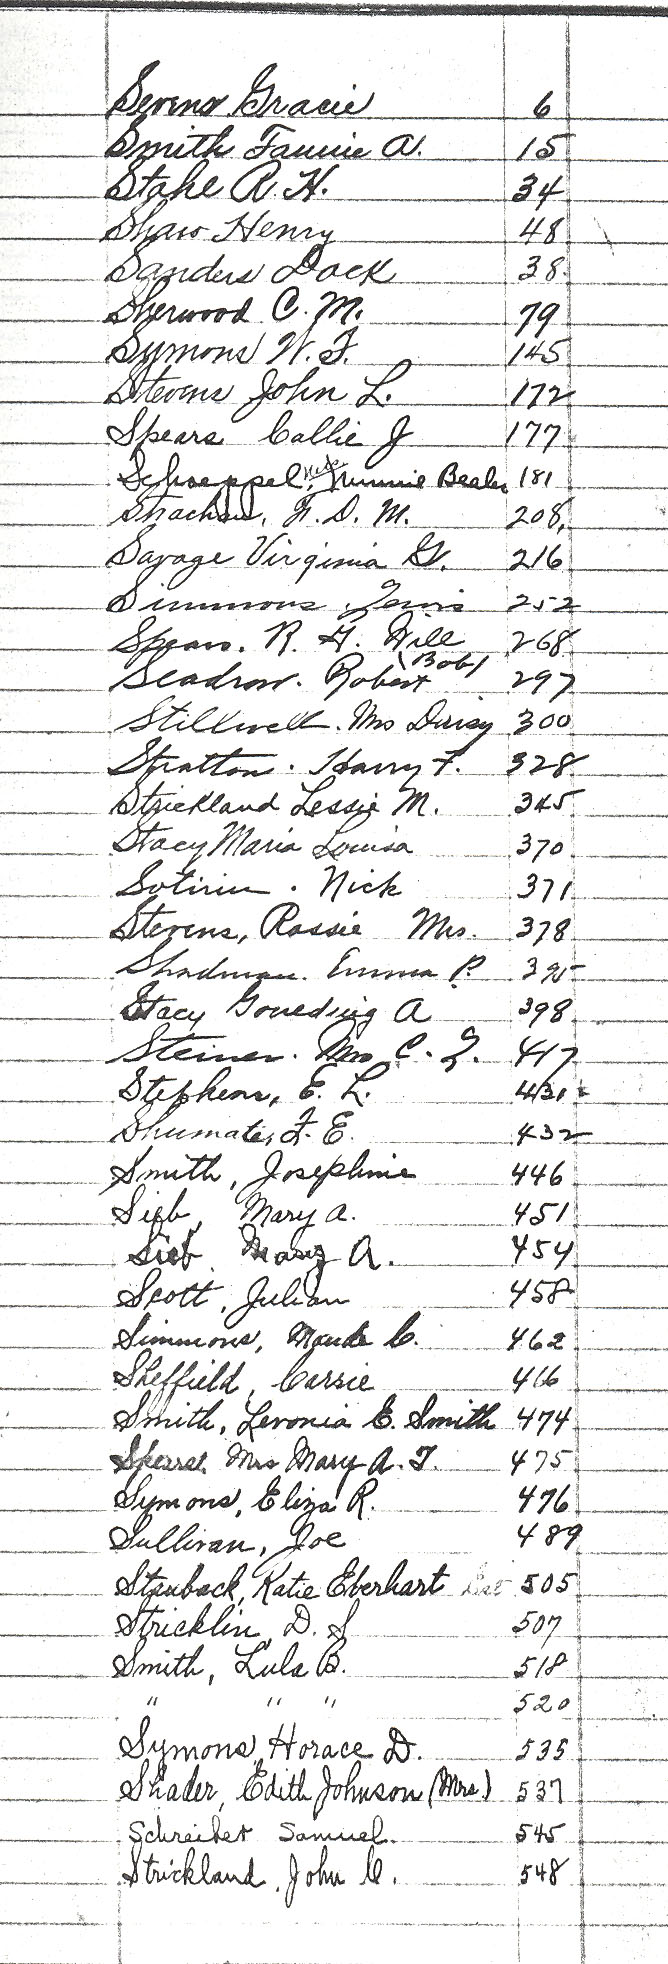 Severns Gracie 6
Smith Fannie A. 15
Stahl R. H. 34
Shaw Henry 48
Sanders Dock 38
Sherwood C. M. 79
Symons W. F. 145
Stevens John L. 172
Spears Callie J 177
Schoeppel, Minnie Bealer 181
F. D. M. 208
Savage Virginia G. 216
Simmons Lewis 252
Spears. R. H. Will 268
(Bob)
Robert 297
Stillwell. Mrs Daisy 300
Stratton. Harry F. 328
Strickland Lessie M. 345
Stacy Maria Louisa 370
Nick 371
Stevens, Rossie Mrs. 378
Shadman. Emma P. 395
Stacy A 398
Steiner. Mrs C. Z. 417
Stephens, E. L. 431
Shumate, F. E. 432
Smith, Josephine 446
Sieb, Mary A. 451
Sieb Mary A. 454
Scott, Julian 458
Simmons, Maude C. 462
Sheffield, Carrie 466
Smith, Levonia E. Smith 474
Mrs Mary A. T. 475
Symons, Eliza R. 476
Sullivan, Joe 489
Stauback, Katie Eberhart 505
Stricklin, D. S 507
Smith, Lula B. 518
" " " 520
Symons, Horace D. 535
Shader, Edith Johnson (Mrs) 537
Schreiber Samuel. 545
Strickland, John C. 548